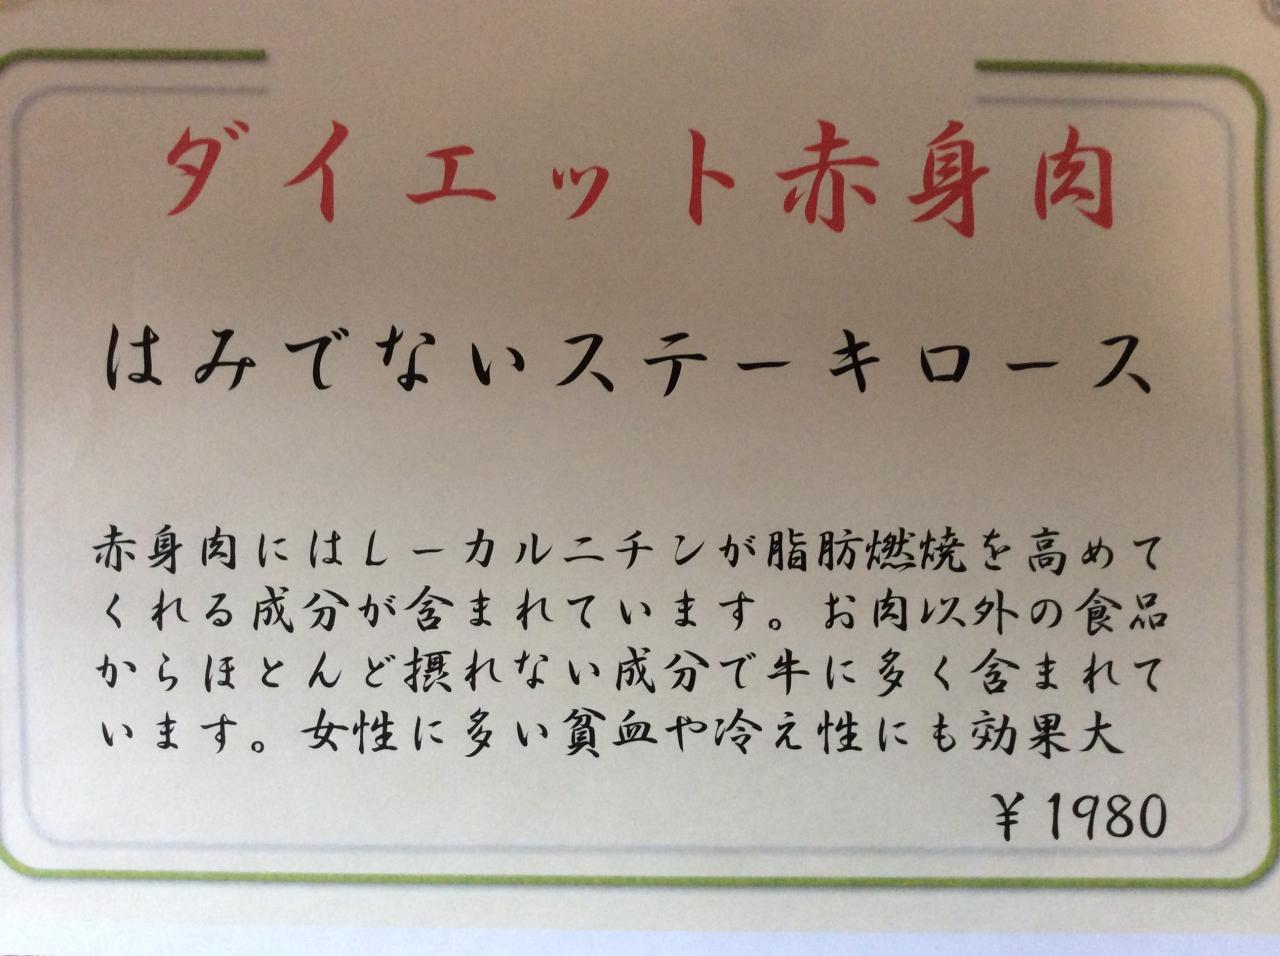 ダイエット赤身肉
はみでないステーキロース
赤身肉にはLーカルニチンが脂肪燃焼を高めて
くれる成分が含まれています。お肉以外の食品
からほとんど摂れない成分で牛に多く含まれて
います。女性に多い貧血や冷え性にも効果大
¥1980